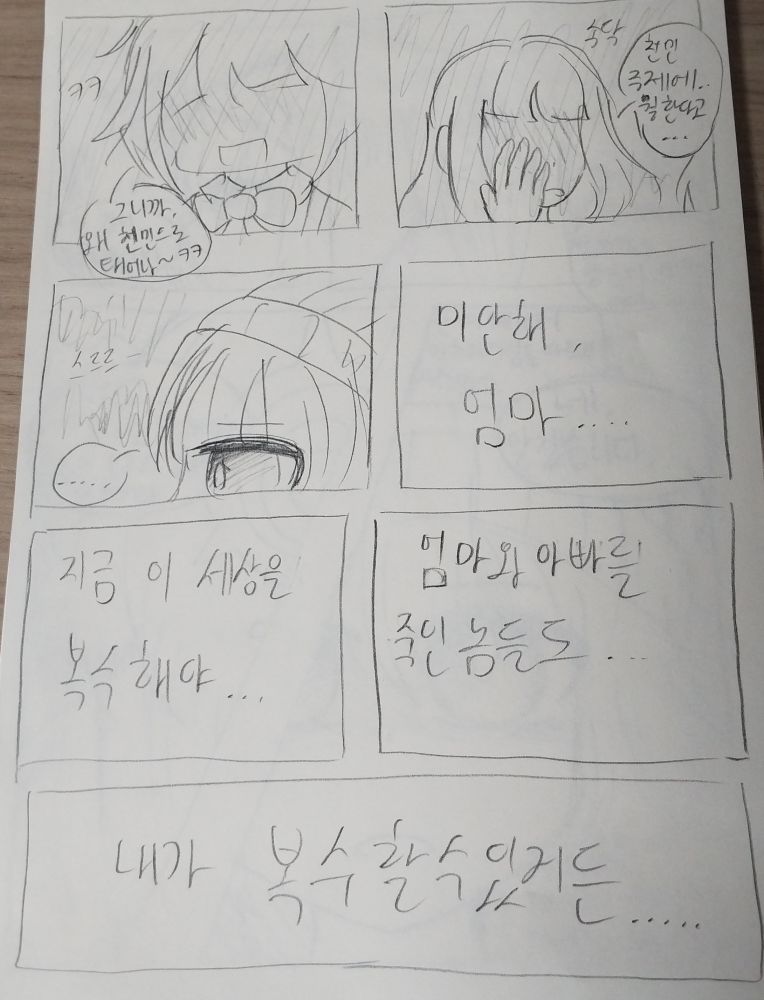 ㅋㅋ
그니까,
왜 천민으로
태어나~ㅋㅋ
속닥
천민
주제에..
뭘한다고
...
스르르
.....
미안해,
엄마....
지금 이 세상을
복수해야...
엄마와 아빠를
죽인 놈들도...
내가 복수할수있거든.....